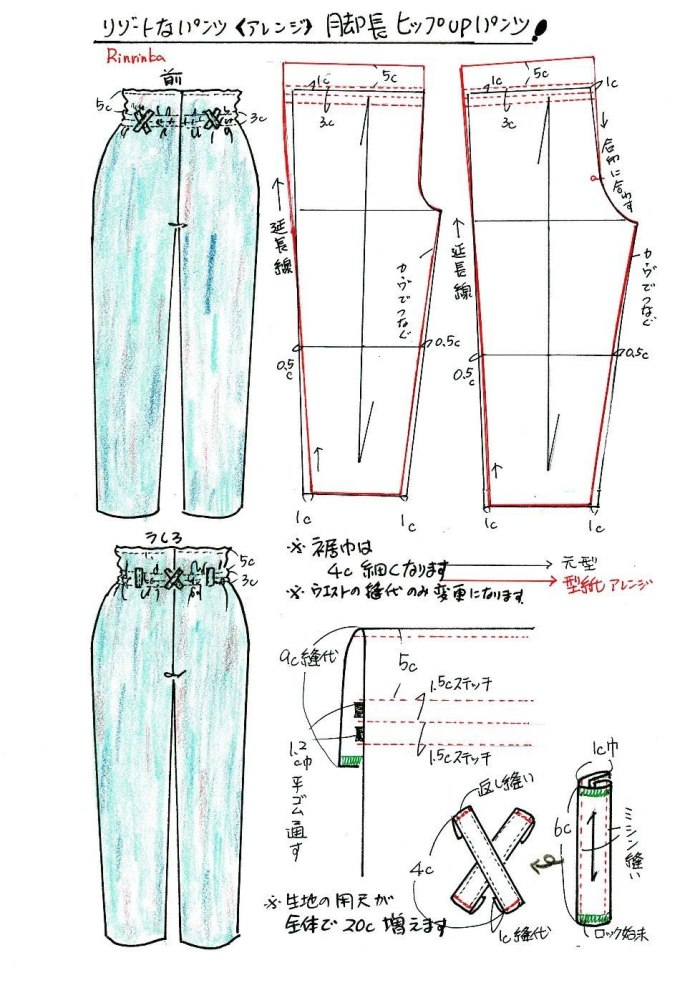 リゾートなパンツ《アレンジ》 脚長ヒップUPパンツ！
Rinrinba
前
5c
3c
1c
5c
3c
延長線
カーヴでつなぐ
0.5c
0.5c
1c
1c
1c
5c
1c
3c
合印に合わす
延長線
カーヴでつなぐ
0.5c
0.5c
1c
1c
うしろ
5c
3c
※ 裾巾は
4c 細くなります
※ ウエストの縫代のみ変更になります
元型
型紙アレンジ
9c縫代
5c
1.5cステッチ
1.5cステッチ
1.2c巾平ゴム通す
返し縫い
4c
1c縫代
1c巾
6c
ミシン縫い
ロック始末
※ 生地の用尺が
全体で 20c 増えます